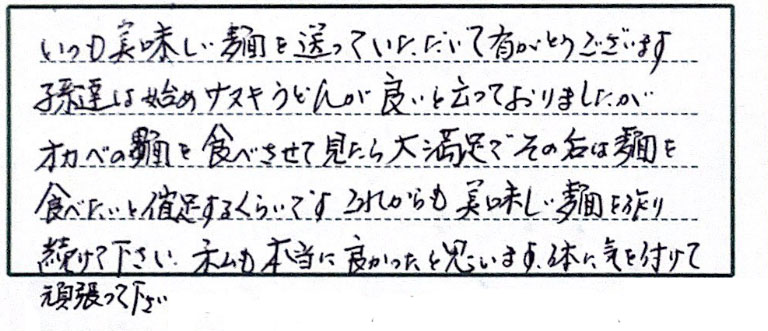 いつも美味しい麺を送っていただいて有がとうございます
孫達は始めサヌキうどんが良いと云っておりましたが
オカベの麺を食べさせて見たら大満足でその后は麺を
食べたいと催足するくらいです これからも美味しい麺を作り
続けて下さい、私も本当に良かったと思います、体に気を付けて
頑張って下さい